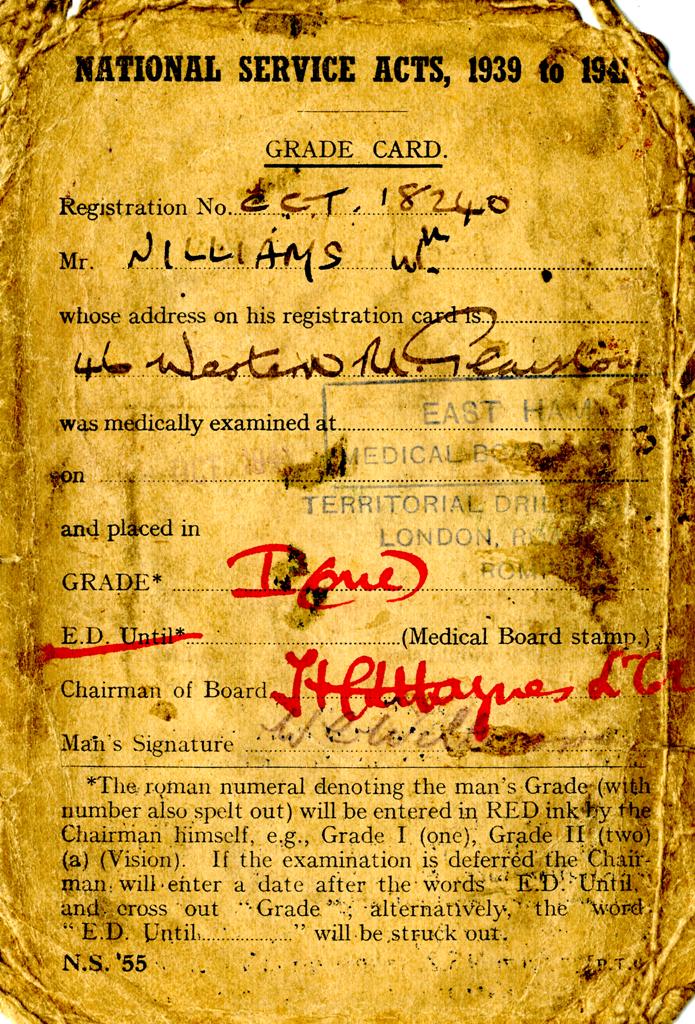 NATIONAL SERVICE ACTS, 1939 to 194
GRADE CARD.
Registration No. CCT. 18240
Mr. WILLIAMS Wm
whose address on his registration card is
46 Western
was medically examined at
EAST HAM
MEDICAL BOARD
on
TERRITORIAL DRILL
and placed in
LONDON, ROAD
ROM
GRADE* I (one)
E.D. Until* (Medical Board stamp.)
Chairman of Board Haynes
Man's Signature
*The roman numeral denoting the man's Grade (with
number also spelt out) will be entered in RED ink by the
Chairman himself, e.g., Grade I (one), Grade II (two)
(a) (Vision). If the examination is deferred the Chair-
man will enter a date after the words "E.D. Until,"
and cross out "Grade"; alternatively, the word
"E.D. Until.............." will be struck out.
N.S. '55 P.T.O.